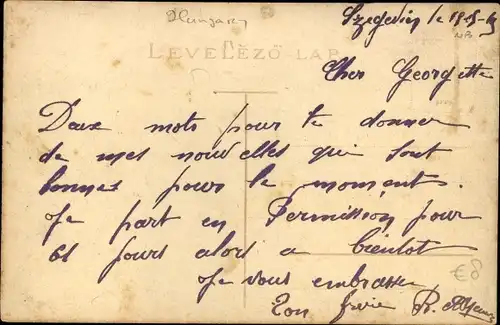 Hungary
Szegedin le 19-5-19
LEVELEZŐ-LAP
Cher Georgette
Deux mots pour te donner
de mes nouvelles qui sont
bonnes pour le moment.
Je part en Permission pour
61 jours alors a bientot
Je vous embrasse
Ton frère R.